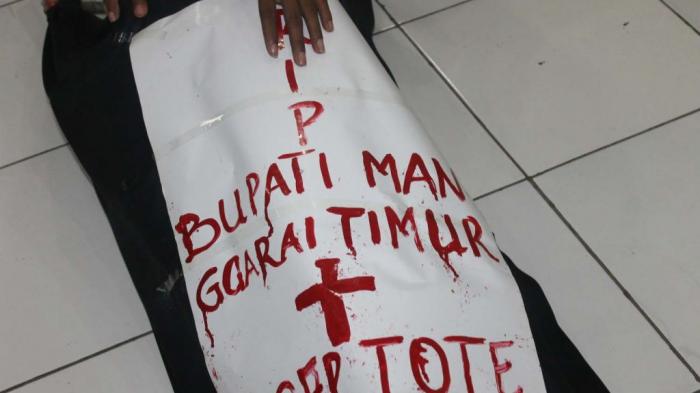 R
I
P
BUPATI MAN
GGARAI TIMUR
TOTE